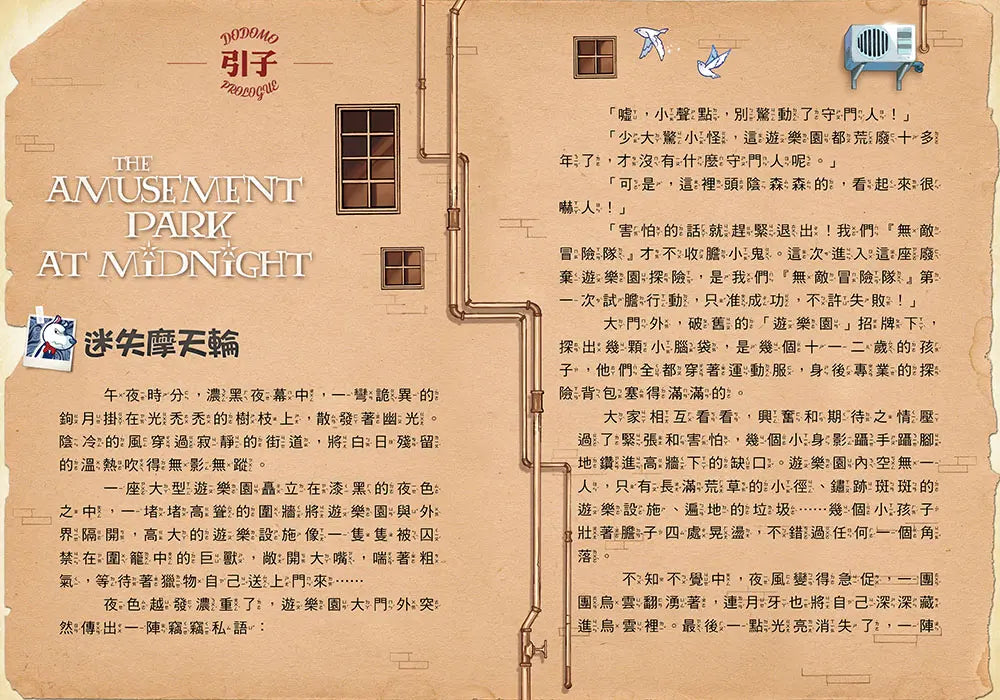 DODOMO
引子
PROLOGUE
THE
AMUSEMENT
PARK
AT MiDNiGHT
迷失摩天輪
午夜時分，濃黑夜幕中，一彎詭異的
鉤月掛在光禿禿的樹枝上，散發著幽光。
陰冷的風穿過寂靜的街道，將白日殘留
的溫熱吹得無影無蹤。
一座大型遊樂園矗立在漆黑的夜色
之中，一堵堵高聳的圍牆將遊樂園與外
界隔開，高大的遊樂設施像一隻隻被囚
禁在圍籠中的巨獸，敞開大嘴，喘著粗
氣，等待著獵物自己送上門來……
夜色越發濃重了，遊樂園大門外突
然傳出一陣竊竊私語：
「噓，小聲點，別驚動了守門人！」
「少大驚小怪，這遊樂園都荒廢十多
年了，才沒有什麼守門人呢。」
「可是，這裡頭陰森森的，看起來很
嚇人！」
「害怕的話就趕緊退出！我們『無敵
冒險隊』才不收膽小鬼。這次進入這座廢
棄遊樂園探險，是我們『無敵冒險隊』第
一次試膽行動，只准成功，不許失敗！」
大門外，破舊的「遊樂園」招牌下，
探出幾顆小腦袋，是幾個十一二歲的孩
子，他們全都穿著運動服，身後專業的探
險背包塞得滿滿的。
大家相互看看，興奮和期待之情壓
過了緊張和害怕，幾個小身影躡手躡腳
地鑽進高牆下的缺口。遊樂園內空無一
人，只有長滿荒草的小徑、鏽跡斑斑的
遊樂設施、遍地的垃圾……幾個小孩子
壯著膽子四處晃盪，不錯過任何一個角
落。
不知不覺中，夜風變得急促，一團
團烏雲翻湧著，連月牙也將自己深深藏
進烏雲裡。最後一點光亮消失了，一陣